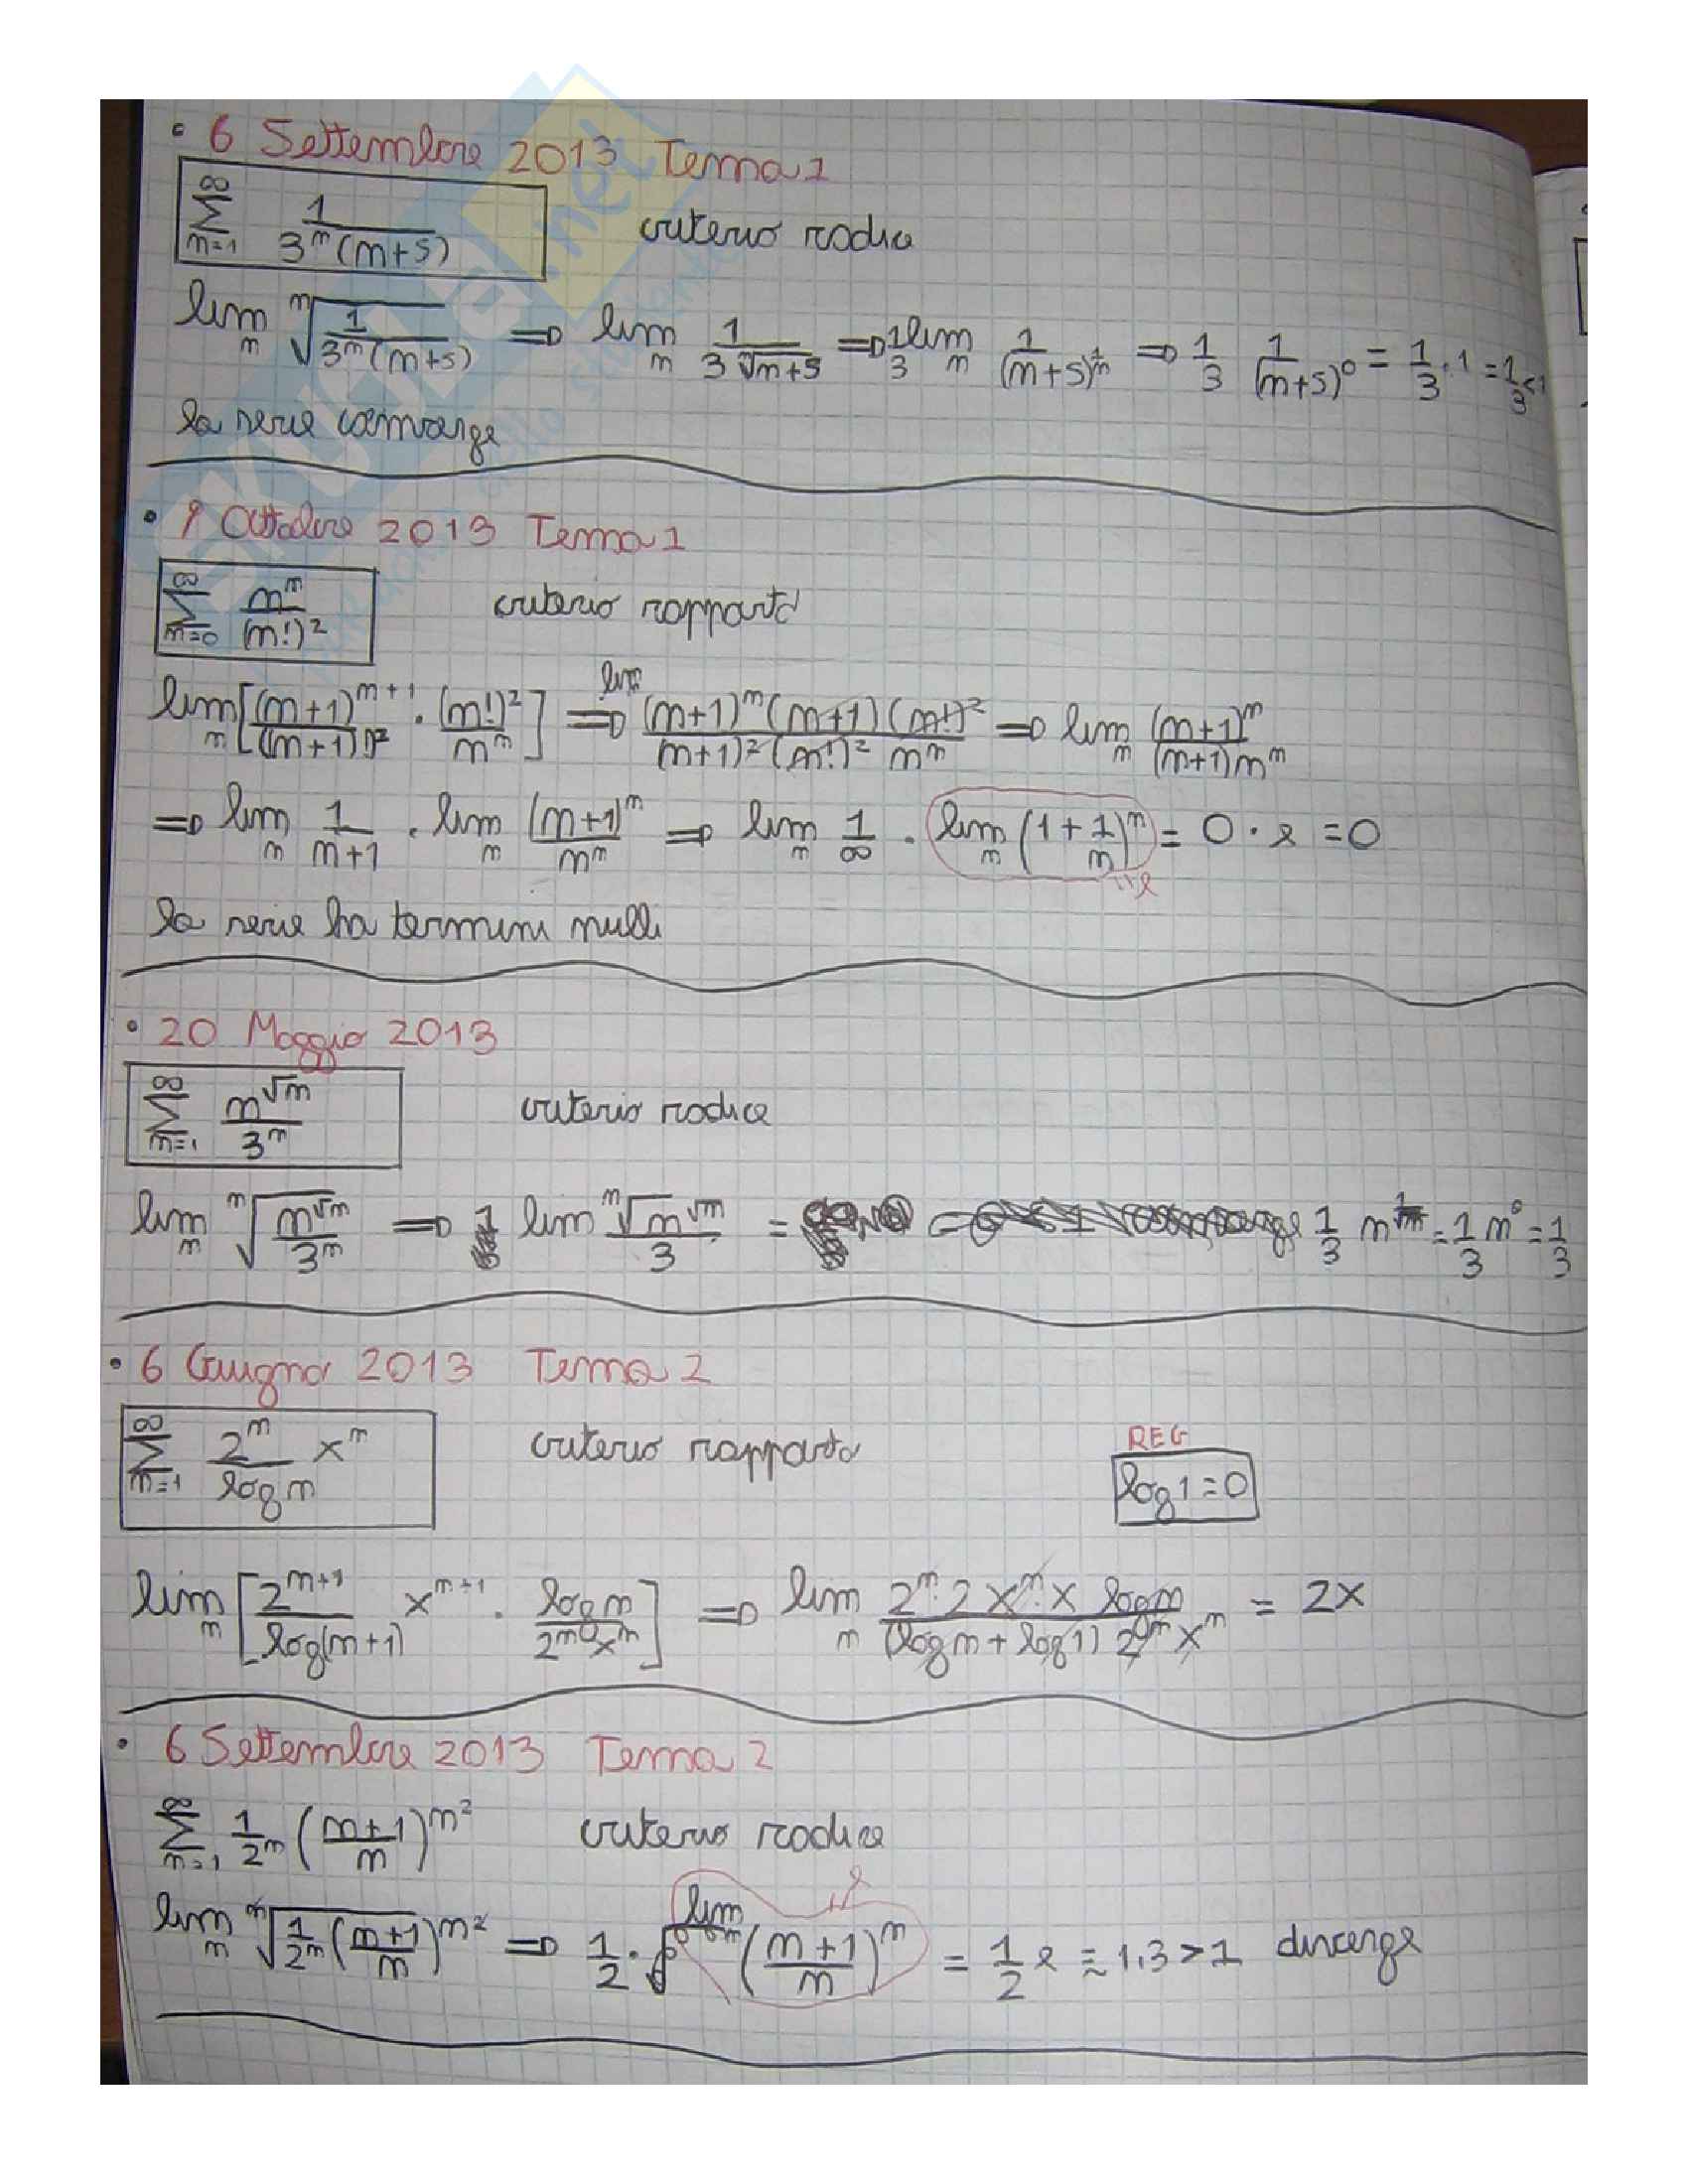 • 6 Settembre 2013 Tema 1
∞ ∑ n=1 1/(3^n (n+5)) criterio radice
lim n ⁿ√(1/(3^n (n+5))) ⇒ lim n 1/(3 ⁿ√(n+5)) ⇒ 1/3 lim n 1/(n+5)^(1/n) ⇒ 1/3 1/(n+5)^0 = 1/3 · 1 = 1/3 < 1
la serie converge
• 9 Ottobre 2013 Tema 1
∞ ∑ n=0 n^n/(n!)^2 criterio rapporto
lim n [(n+1)^(n+1)/((n+1)!)^2 · (n!)^2/n^n] ⇒ lim (n+1)^n (n+1) (n!)^2/((n+1)^2 (n!)^2 n^n) ⇒ lim n (n+1)^n/((n+1) n^n)
⇒ lim n 1/(n+1) · lim n (n+1)^n/n^n ⇒ lim n 1/∞ · lim n (1 + 1/n)^n = 0 · e = 0
"e
la serie ha termini nulli
• 20 Maggio 2013
∞ ∑ n=1 n^√n/3^n criterio radice
lim n ⁿ√(n^√n/3^n) ⇒ lim ⁿ√(n^√n)/3 = 1/3 n^(1/√n) = 1/3 n^0 = 1/3
• 6 Giugno 2013 Tema 2
∞ ∑ n=1 2^n/log n x^n criterio rapporto
REG
log 1 = 0
lim n [2^(n+1)/log(n+1) x^(n+1) · log n/(2^n x^n)] ⇒ lim n 2^n · 2 x^n · x log n/((log n + log 1) 2^n x^n) = 2x
• 6 Settembre 2013 Tema 2
∞ ∑ n=1 1/2^n ((n+1)/n)^(n^2) criterio radice
lim n ⁿ√(1/2^n ((n+1)/n)^(n^2)) ⇒ 1/2 · lim n ((n+1)/n)^n = 1/2 e ≈ 1,3 > 1 diverge